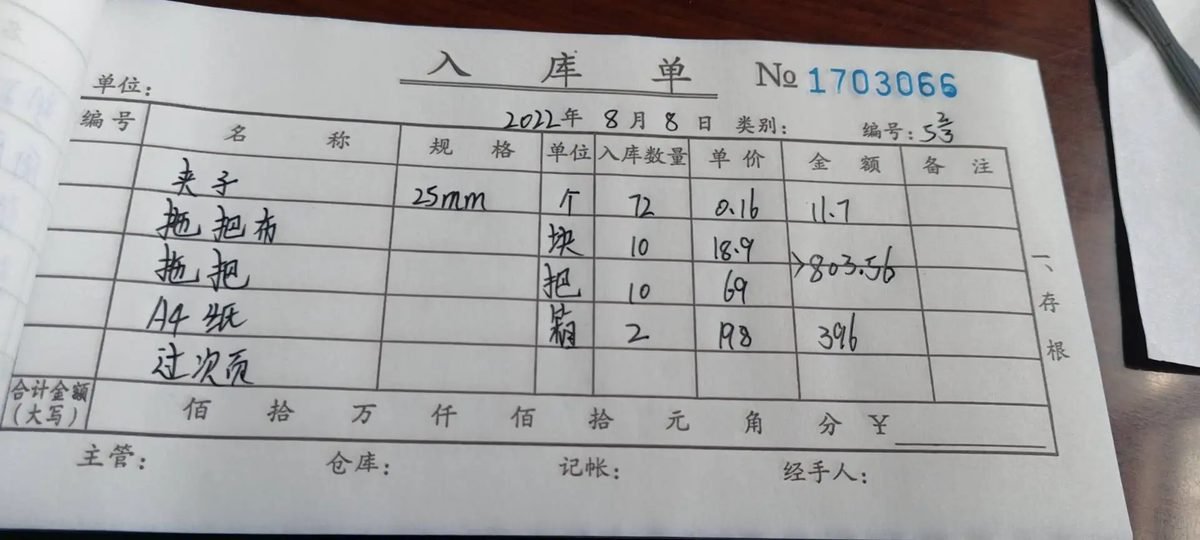 入 库 单 № 1703066
单位:
2022年 8月 8日 类别: 编号: 5 2/3
编号 名 称 规 格 单位 入库数量 单价 金 额 备 注
夹子 25mm 个 72 0.16 11.7
拖把布 块 10 18.9
>803.56
拖把 把 10 69
A4纸 箱 2 198 396
过次页
合计金额(大写) 佰 拾 万 仟 佰 拾 元 角 分 ¥
主管: 仓库: 记帐: 经手人:
一、存根